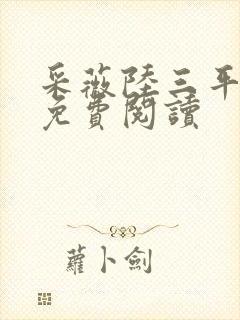 采薇陸三平
免費閱讀
蘿卜劍